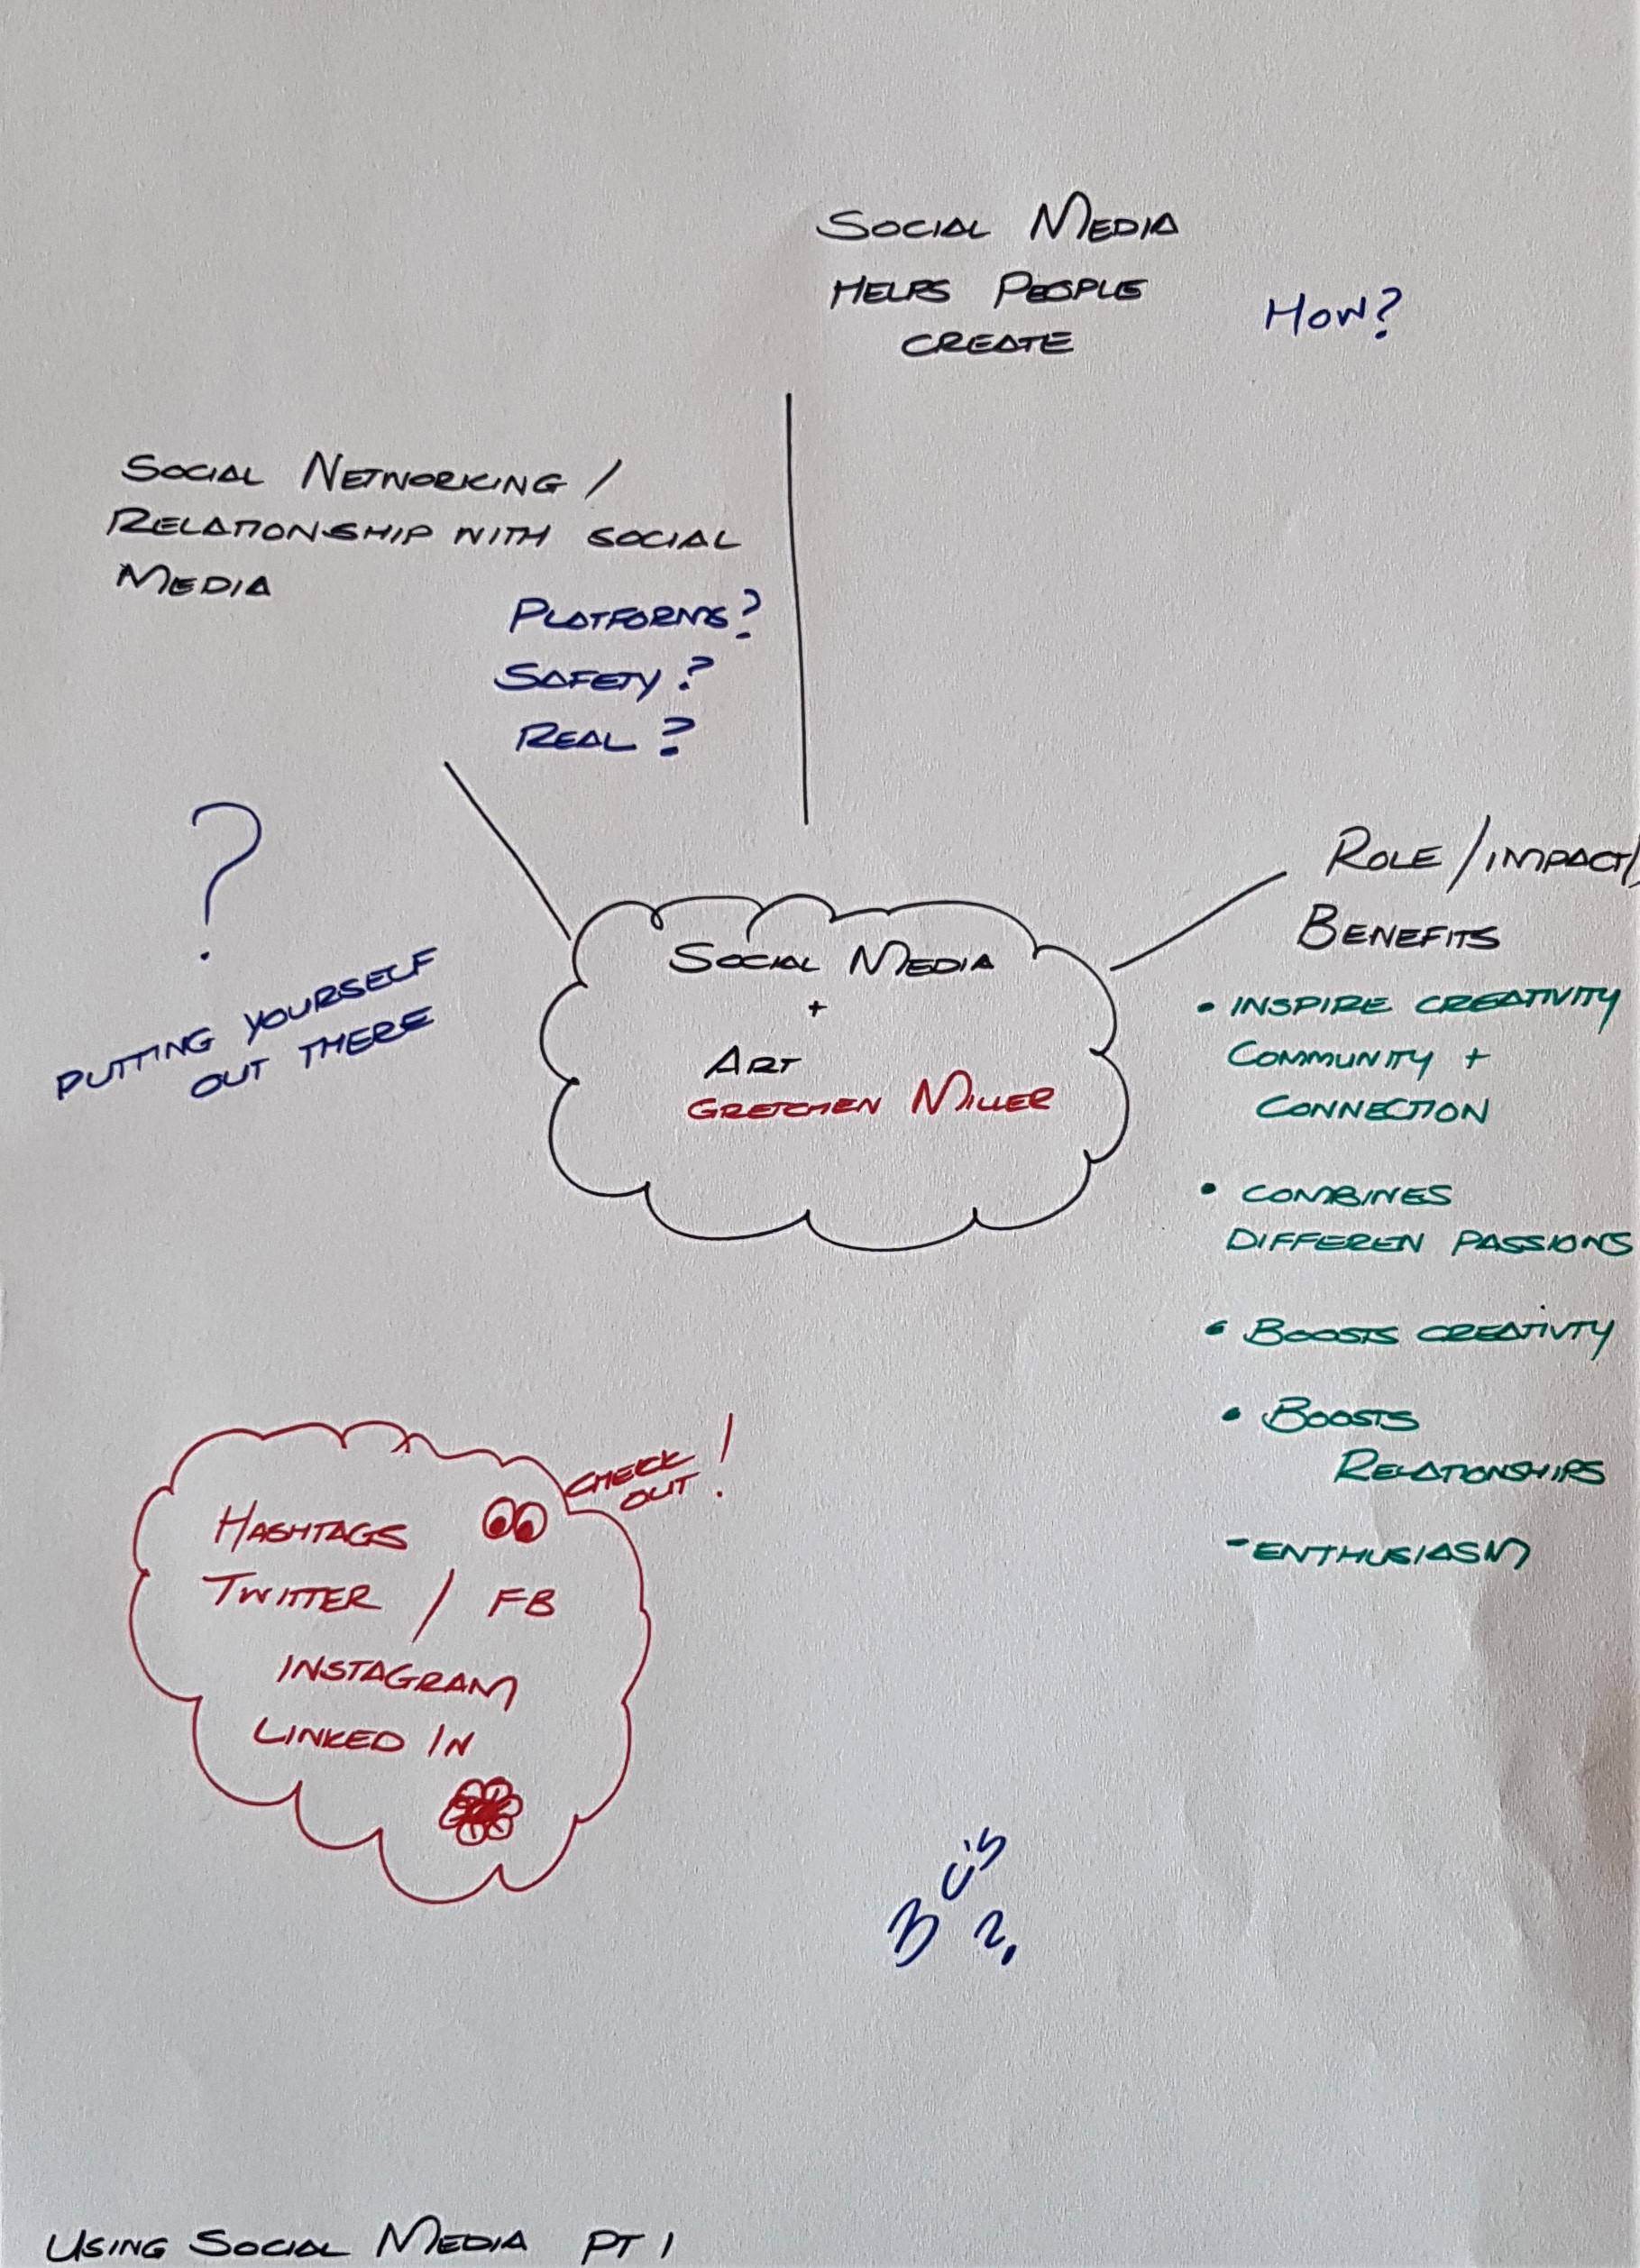 SOCIAL MEDIA
HELPS PEOPLE
CREATE
HOW?
SOCIAL NETWORKING /
RELATIONSHIP WITH SOCIAL
MEDIA
PLATFORMS?
SAFETY?
REAL?
?
PUTTING YOURSELF
OUT THERE
SOCIAL MEDIA
+
ART
GRETCHEN MILLER
ROLE / IMPACT /
BENEFITS
• INSPIRE CREATIVITY
COMMUNITY +
CONNECTION
• COMBINES
DIFFEREN PASSIONS
• BOOSTS CREATIVTY
• BOOSTS
RELATIONSHIPS
- ENTHUSIASM
CHECK
OUT!
HASHTAGS
TWITTER / FB
INSTAGRAM
LINKED IN
3 C's
?
USING SOCIAL MEDIA PT 1